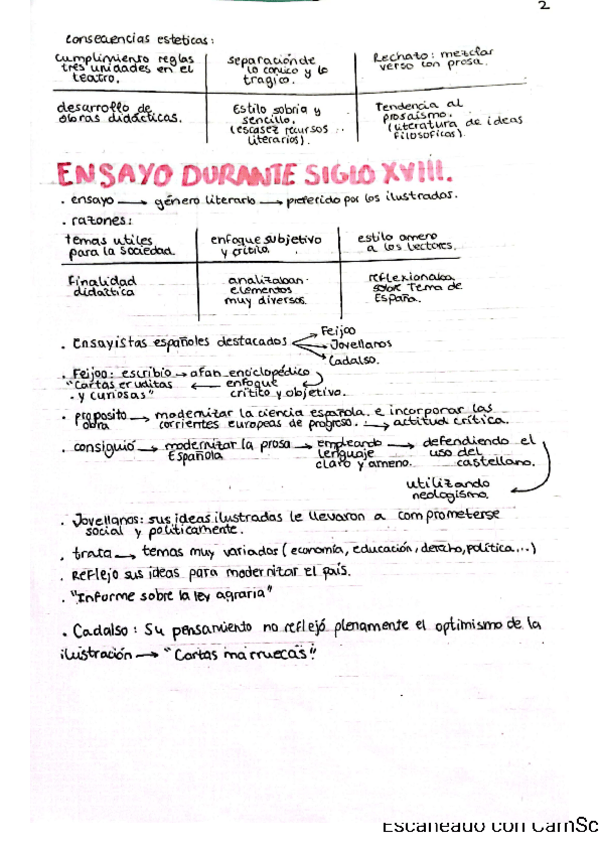 2
consecuencias esteticas:
cumplimiento reglas tres unidades en el teatro.
separación de lo comico y lo tragico.
Rechazo: mezclar verso con prosa.
desarrollo de obras didácticas.
Estilo sobrio y sencillo. (escasez recursos literarios).
Tendencia al prosaísmo. (literatura de ideas filosoficas).
ENSAYO DURANTE SIGLO XVIII.
. ensayo → género literario → preferido por los ilustrados.
. razones:
temas utiles para la sociedad.
enfoque subjetivo y crítico.
estilo ameno a los lectores.
Finalidad didactica
analizaban elementos muy diversos.
reflexionaba sobre Tema de España.
. Ensayistas españoles destacados
Feijoo
Jovellanos
Cadalso.
. Feijoo: escribio → afan enciclopédico
"Cartas eruditas ← enfoque
. y curiosas" crítico y objetivo.
. proposito → modernizar la ciencia española. e incorporar las
obra corrientes europeas de progreso. → actitud crítica.
. consiguió → modernizar la prosa → empleando → defendiendo el
Española lenguaje uso del
claro y ameno. castellano.
utilizando
neologismo.
. Jovellanos: sus ideas ilustradas le llevaron a comprometerse
social y politicamente.
. trata → temas muy variados (economía, educación, derecho, política...)
. Reflejo sus ideas para modernizar el país.
. "Informe sobre la ley agraria"
. Cadalso: Su pensamiento no reflejó plenamente el optimismo de la
ilustración → "Cartas marruecas".
Escaneado con CamSc